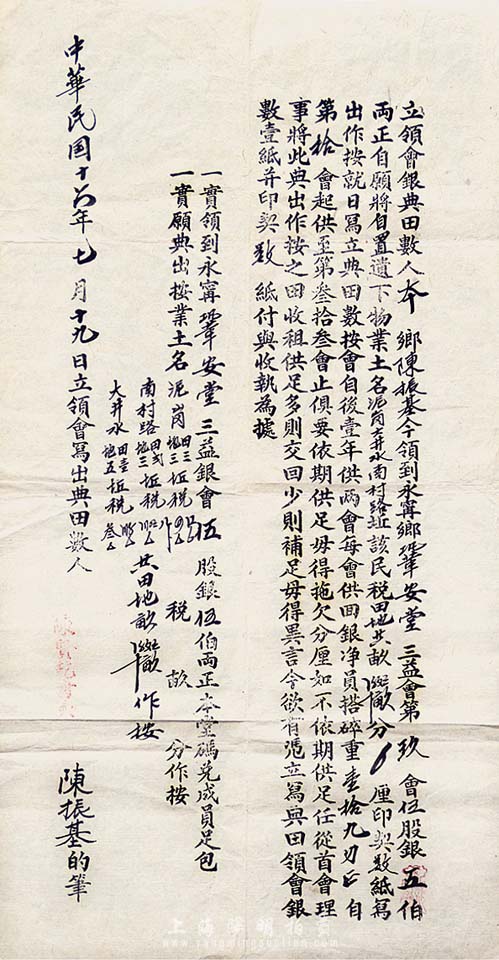 立領會銀典田數人本鄉陳振基今領到永寗鄉鞏安堂三益會第玖會伍股銀五伯
両正自願將自置遺下物業土名泥崗大井水南村路坵該民税田地共畝分厘印契數紙寫
出作按就日寫立典田數按會自後壹年供両會每會供田銀净員搭碎重壹拾九刃正自
第拾會起供至第叁拾叁會止俱要依期供足毋得拖欠分厘如一不依期供足任從首會理
事將此典出作按之田收租供足多則交回少則補足毋得異言今欲有憑立寫典田領會銀
數壹紙并印契數紙付與收執為據
一實領到永寗鞏安堂三益銀會伍股銀伍伯両正本堂碼兑成員足包
一實願典出按業土名泥崗田三坵税税畝分作按
南村路坵税共田地畝作按
大井水坵税
中華民国十六年七月十九日立領會寫出典田數人
陳振基的筆
上海陽明拍賣
www.yangmingauction.com